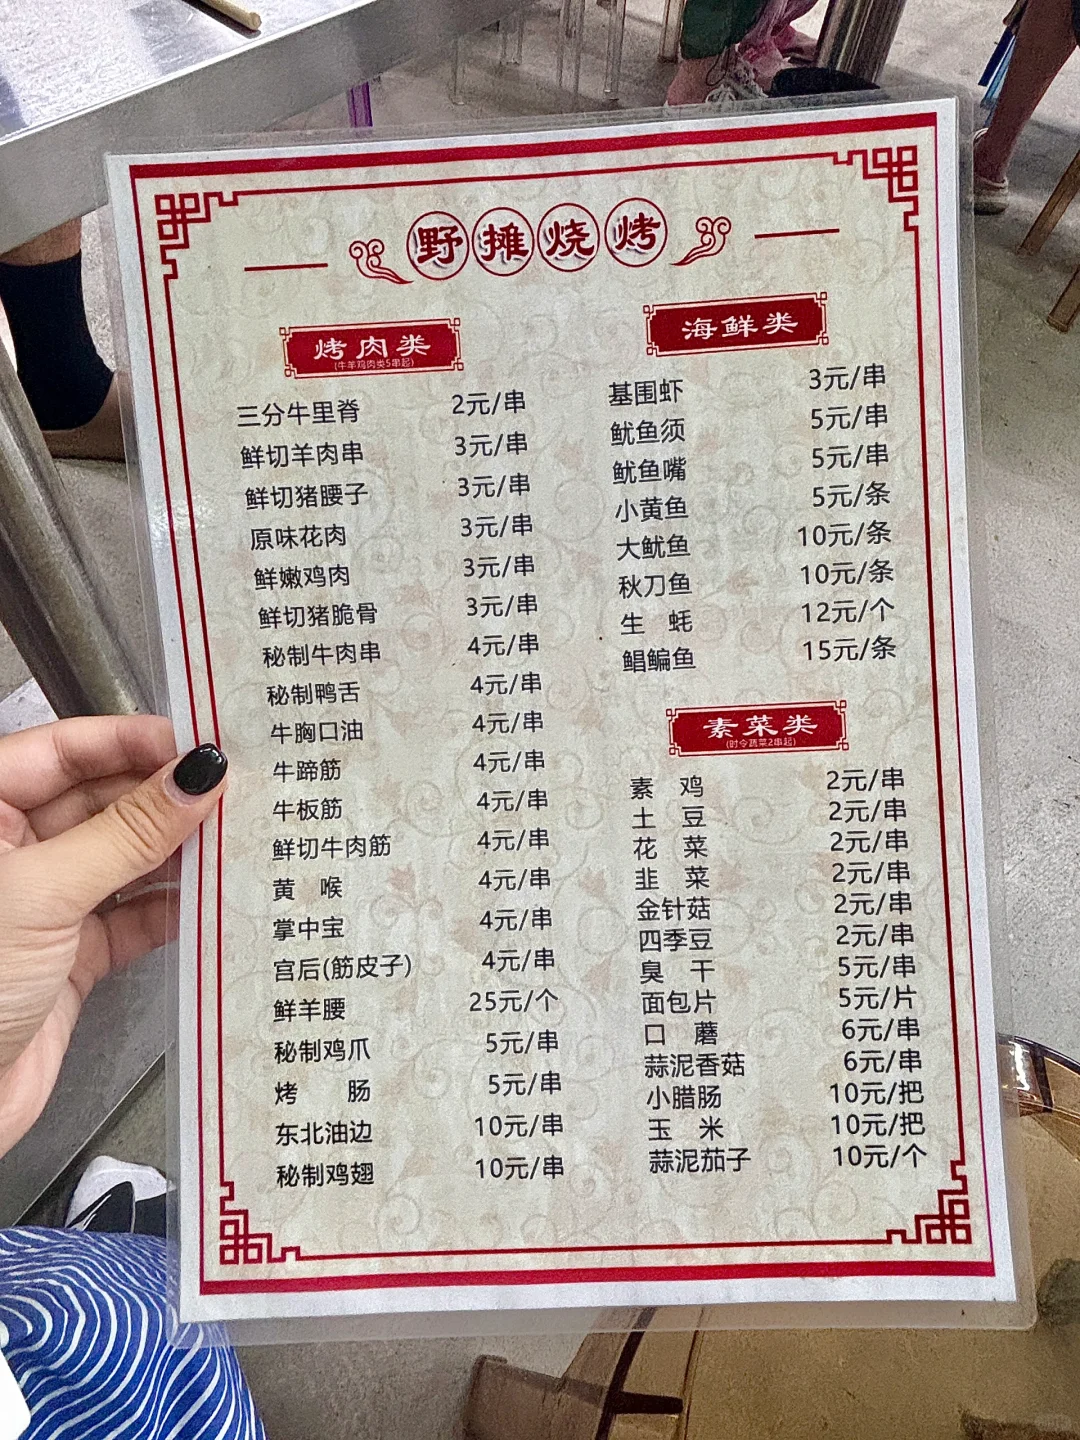 野摊烧烤
烤肉类
(牛羊鸡肉类5串起)
三分牛里脊 2元/串
鲜切羊肉串 3元/串
鲜切猪腰子 3元/串
原味花肉 3元/串
鲜嫩鸡肉 3元/串
鲜切猪脆骨 3元/串
秘制牛肉串 4元/串
秘制鸭舌 4元/串
牛胸口油 4元/串
牛蹄筋 4元/串
牛板筋 4元/串
鲜切牛肉筋 4元/串
黄喉 4元/串
掌中宝 4元/串
宫后(筋皮子) 4元/串
鲜羊腰 25元/个
秘制鸡爪 5元/串
烤肠 5元/串
东北油边 10元/串
秘制鸡翅 10元/串
海鲜类
基围虾 3元/串
鱿鱼须 5元/串
鱿鱼嘴 5元/串
小黄鱼 5元/条
大鱿鱼 10元/条
秋刀鱼 10元/条
生蚝 12元/个
鲳鳊鱼 15元/条
素菜类
(时令蔬菜2串起)
素鸡 2元/串
土豆 2元/串
花菜 2元/串
韭菜 2元/串
金针菇 2元/串
四季豆 2元/串
臭干 5元/串
面包片 5元/片
口蘑 6元/串
蒜泥香菇 6元/串
小腊肠 10元/把
玉米 10元/把
蒜泥茄子 10元/个